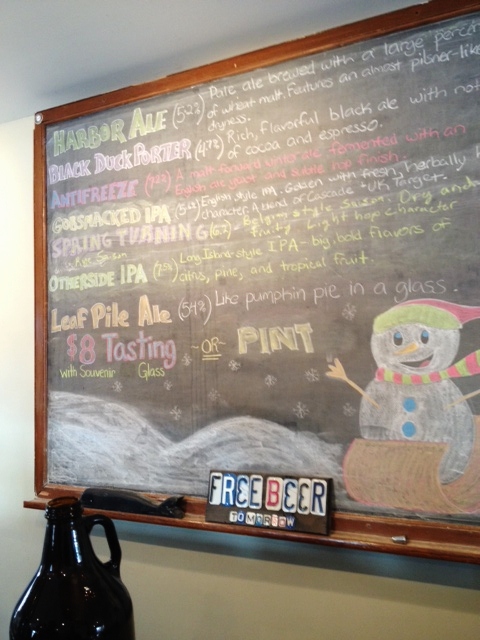 HARBOR ALE (5.2%) Pale ale brewed with a large perce
of wheat malt. Features an almost pilsner-like
dryness.
BLACK DUCK PORTER (4.7%) Rich, flavorful black ale with not
of cocoa and espresso.
ANTIFREEZE A malt-forward winter ale fermented with an
English ale yeast and subtle hop finish.
GOBSMACKED IPA English style IPA. Golden with fresh, herbally h
character. A blend of Cascade + UK Target.
SPRING TURNING Belgian style Saison. Dry and
Rye Saison fruity. Light hops character
OTHERSIDE IPA Long Island-style IPA - big, bold flavors of
citrus, pine, and tropical fruit.
Leaf Pile Ale (5.4%) Like pumpkin pie in a glass.
$8 Tasting ~OR~ PINT
with Souvenir Glass
FREE BEER
TOMORROW